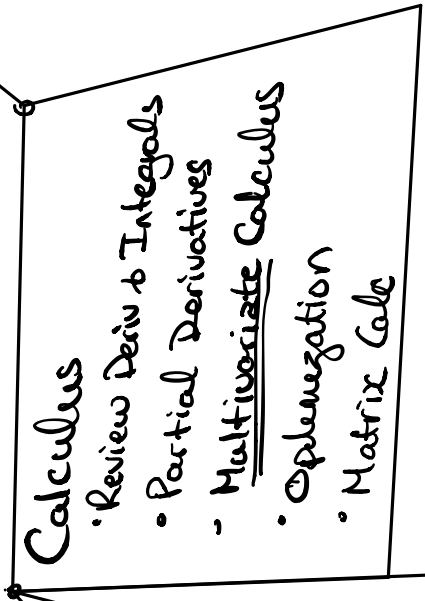 Calculus
• Review Deriv & Integrals
• Partial Derivatives
• Multivariate Calculus
• Optimization
• Matrix Calc